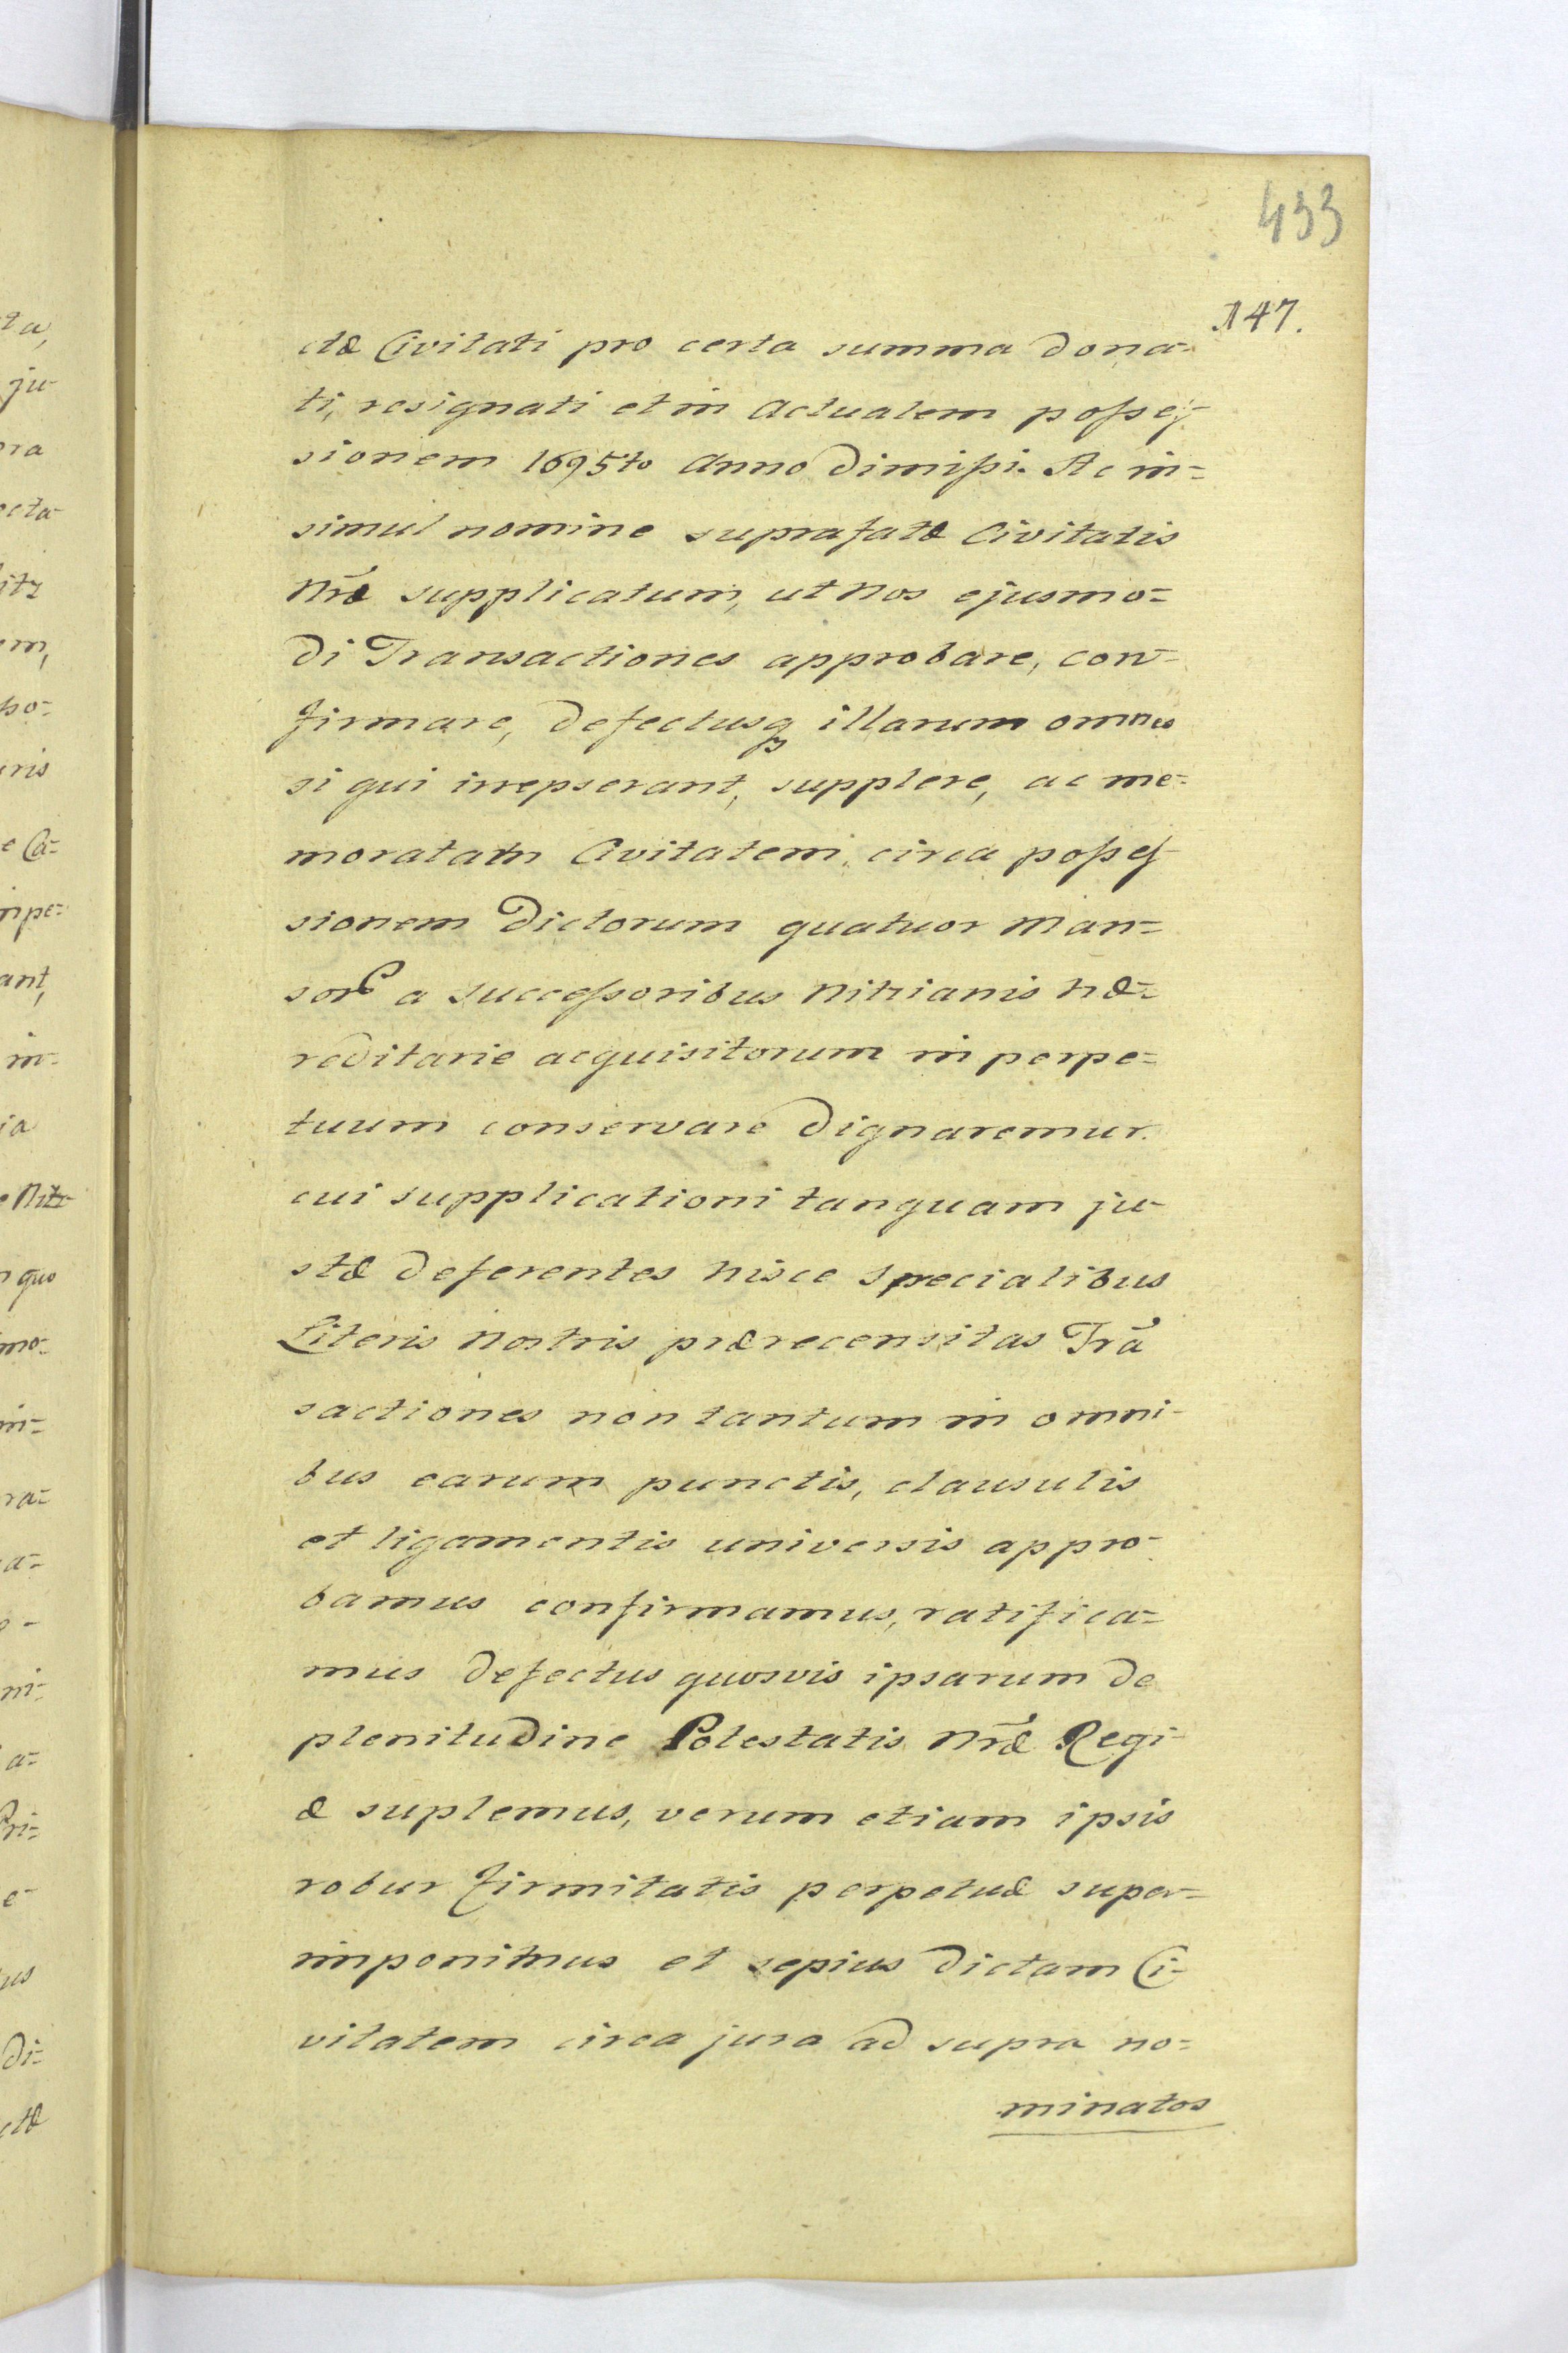 433
147.
ctæ Civitati pro certa summa dona-
ti, resignati et in actualem posses-
sionem 1695to Anno dimissi. Ac in=
simul nomine suprafatæ Civitatis
Nr̃æ supplicatum, ut Nos ejusmo=
di Transactiones approbare, con-
firmare, defectusq₃ illarum omnes
si qui irrepserant, supplere, ac me-
moratam Civitatem circa posses-
sionem dictorum quatuor Man=
sor a successoribus Nitzianis hæ=
reditarie acquisitorum in perpe=
tuum conservare dignaremur.
cui supplicationi tanquam ju-
stæ deferentes hisce specialibus
Literis Nostris prærecensitas Trã
sactiones non tantum in omni-
bus earum punctis, clausulis
et ligamentis universis appro-
bamus confirmamus, ratifica=
mus defectus quosvis ipsarum de
plenitudine Potestatis Nr̃æ Regi-
æ suplemus, verum etiam ipsis
robur firmitatis perpetuæ super=
imponimus et sepius dictam Ci-
vitatem circa jura ad supra no=
minatos
ta,
ju-
ora
octa-
itz
em,
po-
uris
e Ca=
mpe=
ant,
in-
ia
e Nitz
n quo
mo-
in=
ra=
a=
o-
ni=
a=
Pri=
e-
us
di=
ctæ